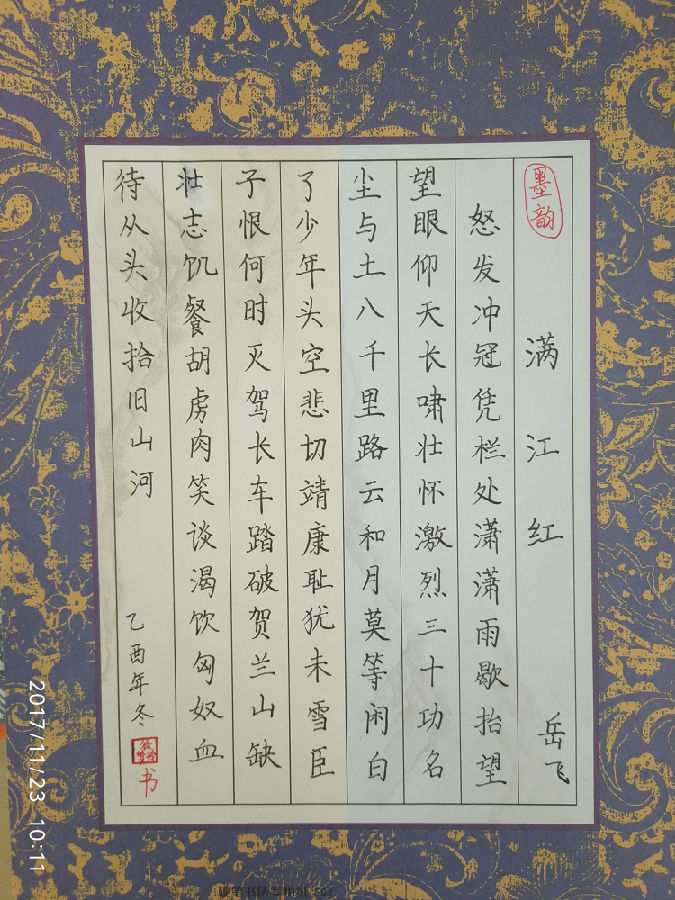 墨韵
满江红
岳飞
怒发冲冠凭栏处潇潇雨歇抬望
望眼仰天长啸壮怀激烈三十功名
尘与土八千里路云和月莫等闲白
了少年头空悲切靖康耻犹未雪臣
子恨何时灭驾长车踏破贺兰山缺
壮志饥餐胡虏肉笑谈渴饮匈奴血
待从头收拾旧山河
乙酉年冬
书
2017/11/23 10:11